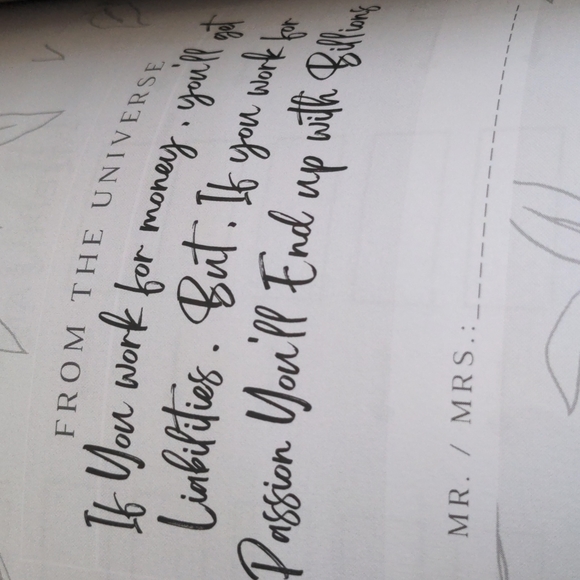 FROM THE UNIVERSE
If You work for money, you'll get
Liabilities. But, If you work for
Passion You'll End up with Billions
MR. / MRS.: